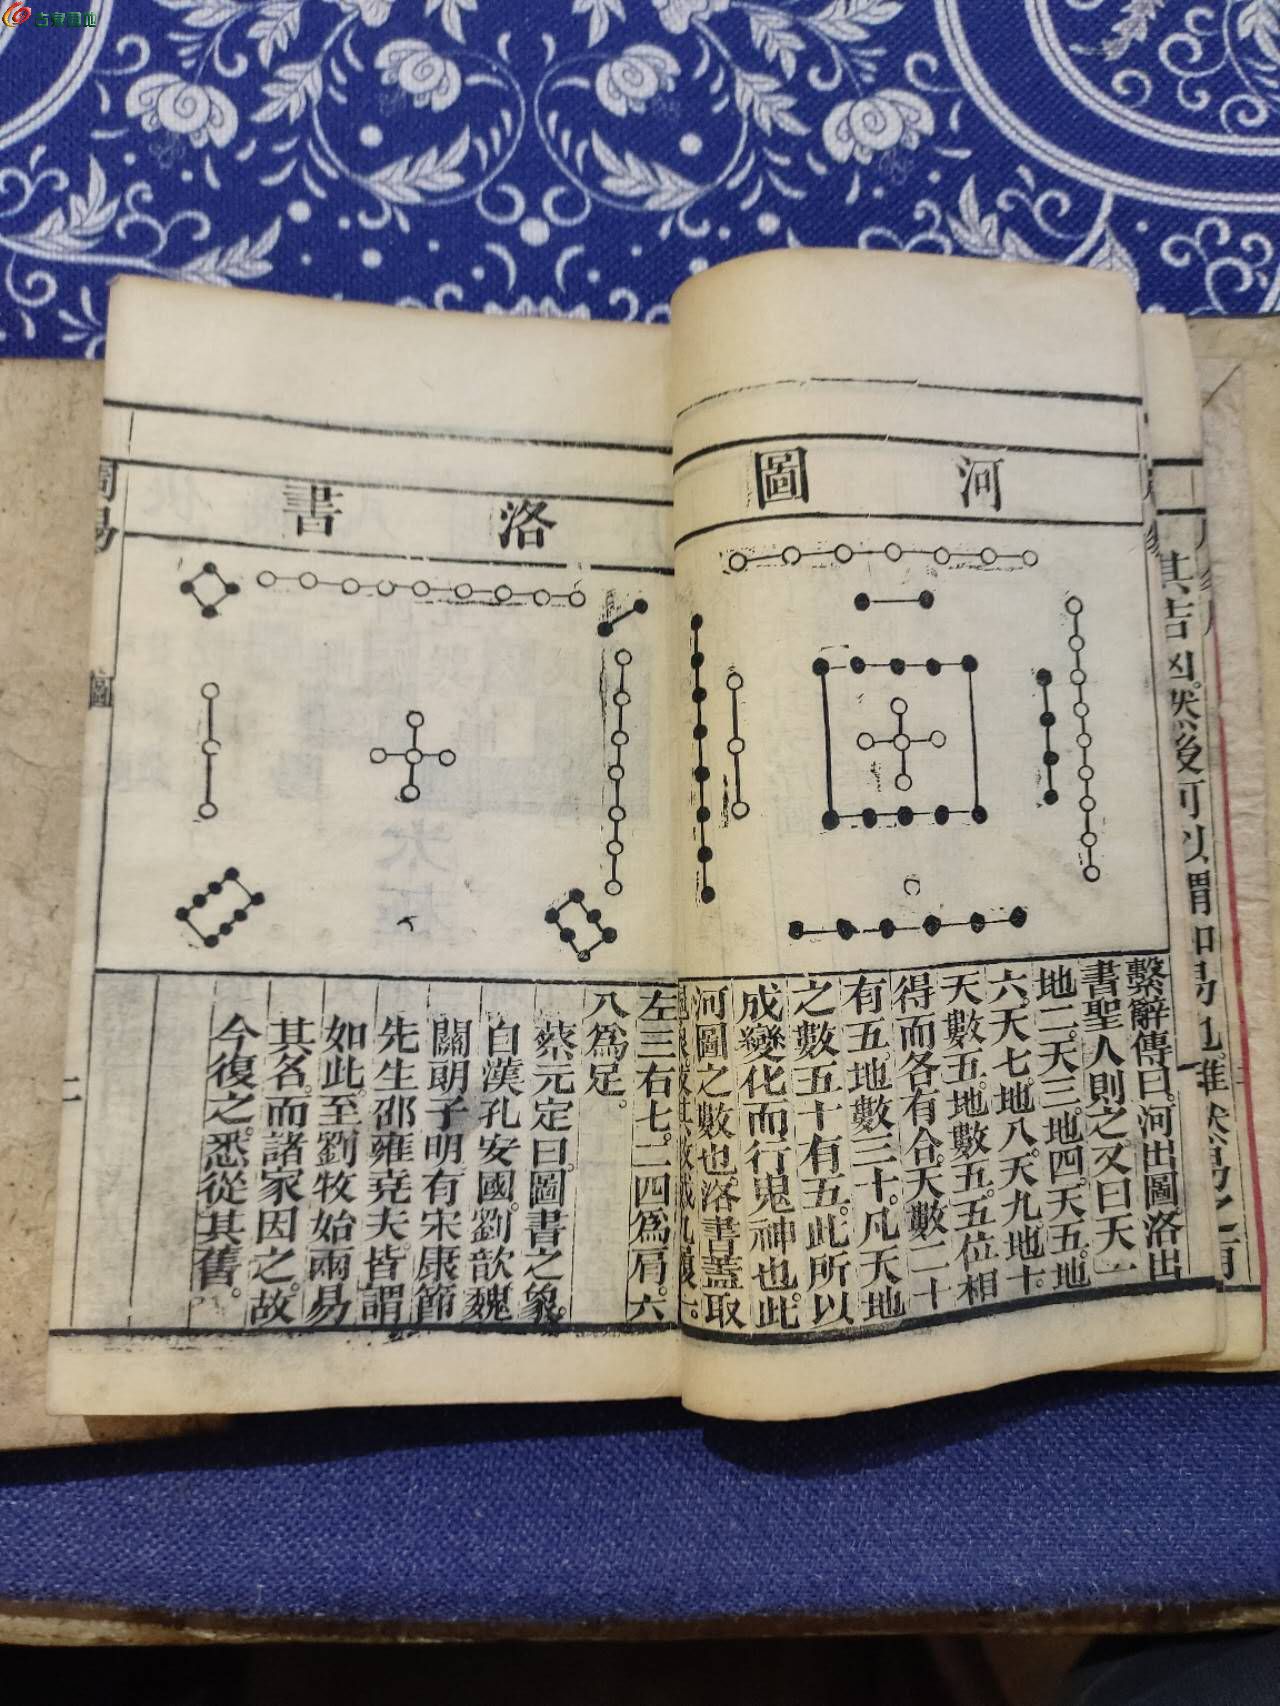 古泉園地
其吉凶。然後可以謂知易也。雖然易之用
河圖
繫辭傳曰。河出圖。洛出
書。聖人則之。又曰。天一
地二。天三。地四。天五。地
六。天七。地八。天九。地十。
天數五。地數五。五位相
得而各有合。天數二十
有五。地數三十。凡天地
之數五十有五。此所以
成變化而行鬼神也。此
河圖之數也。洛書蓋取
龜象。故其數戴九履一。
洛書
左三右七。二四爲肩。六
八爲足。
蔡元定曰。圖書之象。
自漢孔安國。劉歆。魏
關朗子明。有宋康節
先生邵雍堯夫。皆謂
如此。至劉牧始兩易
其名。而諸家因之。故
今復之。悉從其舊。
周易
圖
二